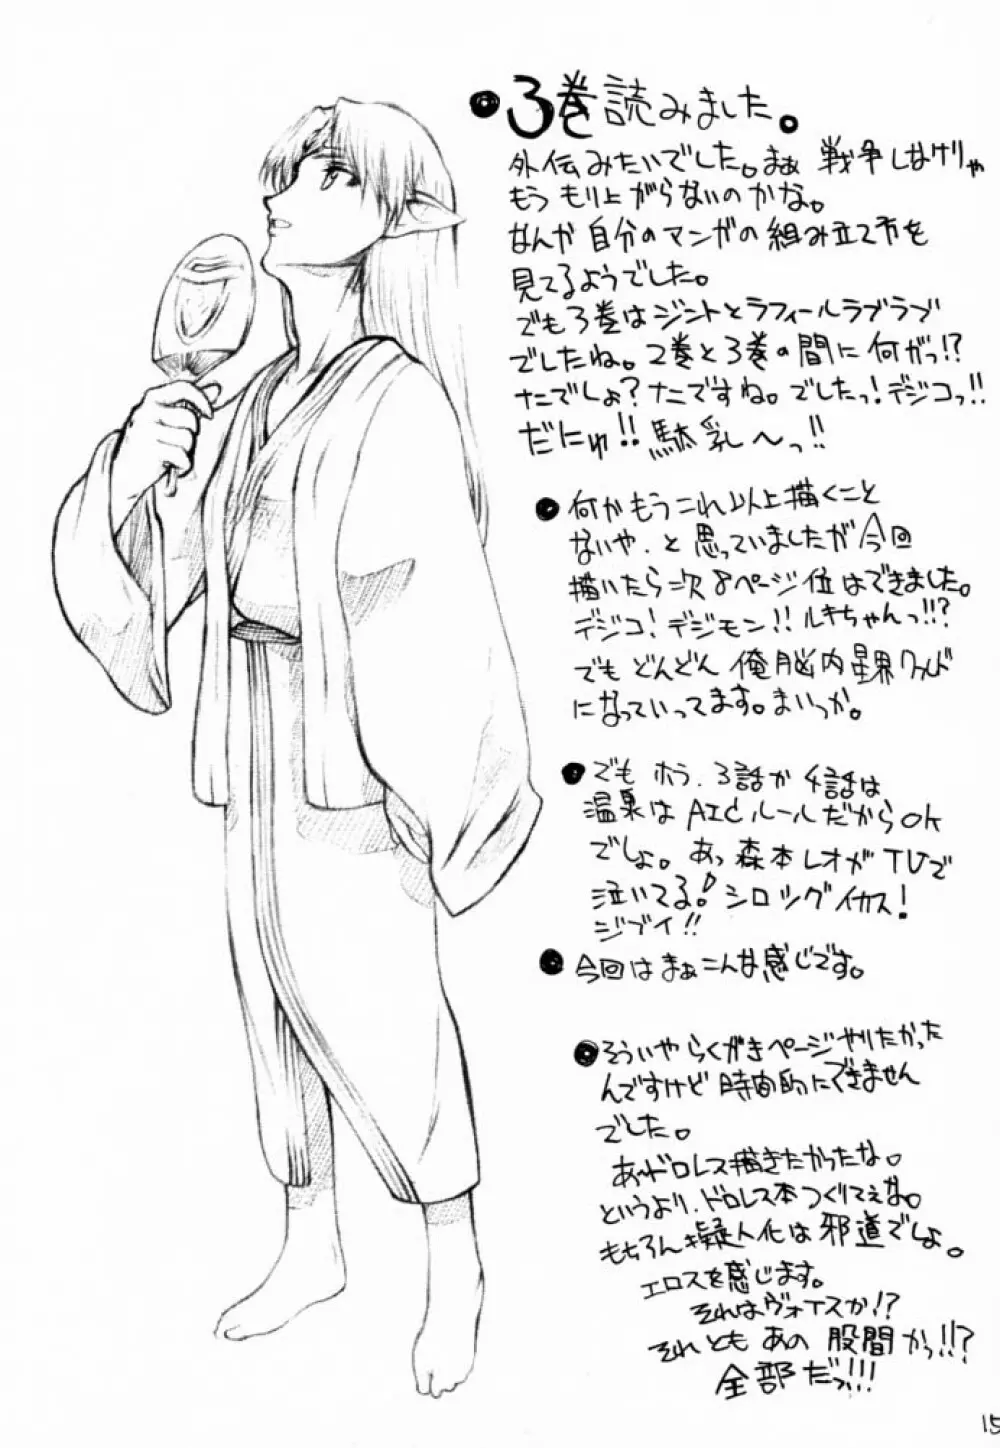 ●3巻読みました。
外伝みたいでした。まぁ 戦争しなけりゃ
もう もり上がらないのかな。
なんか 自分のマンガの組み立て方を
見てるようでした。
でも3巻はジントとラフィールラブラブ
でしたね。2巻と3巻の間に何がっ!?
なにでしょ?なにですね。でしたっ!デジコっ!!
だにゅ!! 駄乳〜っ!!
●何かもうこれ以上描くこと
ないや.と思っていましたが今回
描いたら次8ページ位はできました。
デジコ!デジモン!!ルキちゃんっ!!?
でもどんどん 俺脳内星界ワールド
になっていってます。まいっか。
●でもホラ.3話か4話は
温泉は AICルールだからOK
でしょ。あっ森本レオがTVで
泣いてる!シロッグイカス!
ジブイ!!
●今回はまぁこんな感じです。
●そういやらくがきページやりたかった
んですけど時間的にできません
でした。
あ〜ドロレス描きたかったな。
というより.ドロレス本つくりてぇな。
もちろん擬人化は邪道でしょ。
エロスを感じます。
それはヴォイスか!?
それとも あの 股間かっ!!?
全部だっ!!!
15